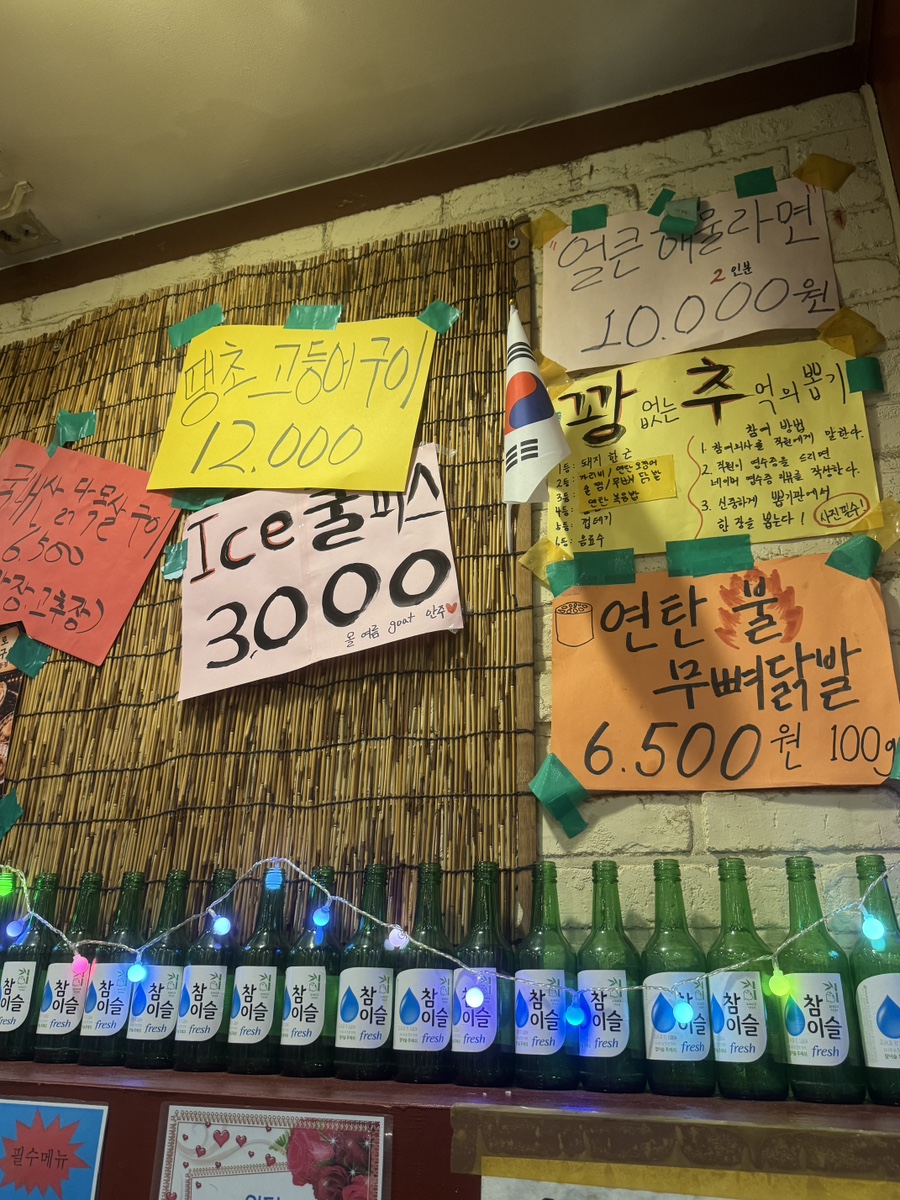 "얼큰 해물라면"
2인분
10.000원
땡초 고등어 구이
12.000
꽝 없는 추억의 뽑기
1등: 돼지 한 근
2등: 가리비/연탄 오징어
3등: 불 껍/무뼈 닭 발
4등: 연탄 볶음밥
5등: 껍데기
6등: 음료수
참여 방법
1. 참여의사를 직원에게 말한다.
2. 직원이 영수증을 드리면
네이버 영수증 리뷰를 작성한다.
3. 신중하게 뽑기판에서
한 장을 뽑는다!
사진필수!
6,500
Ice쿨피스
3,000
올 여름 goat 안주
연탄 불
무뼈닭발
6.500원 100g
참이슬
fresh
참이슬
fresh
참이슬
fresh
참이슬
fresh
참이슬
fresh
참이슬
fresh
참이슬
fresh
참이슬
fresh
참이슬
fresh
참이슬
fresh
참이슬
fresh
참이슬
fresh
참이슬
fresh
참이슬
fresh
참이슬
fresh
필수메뉴